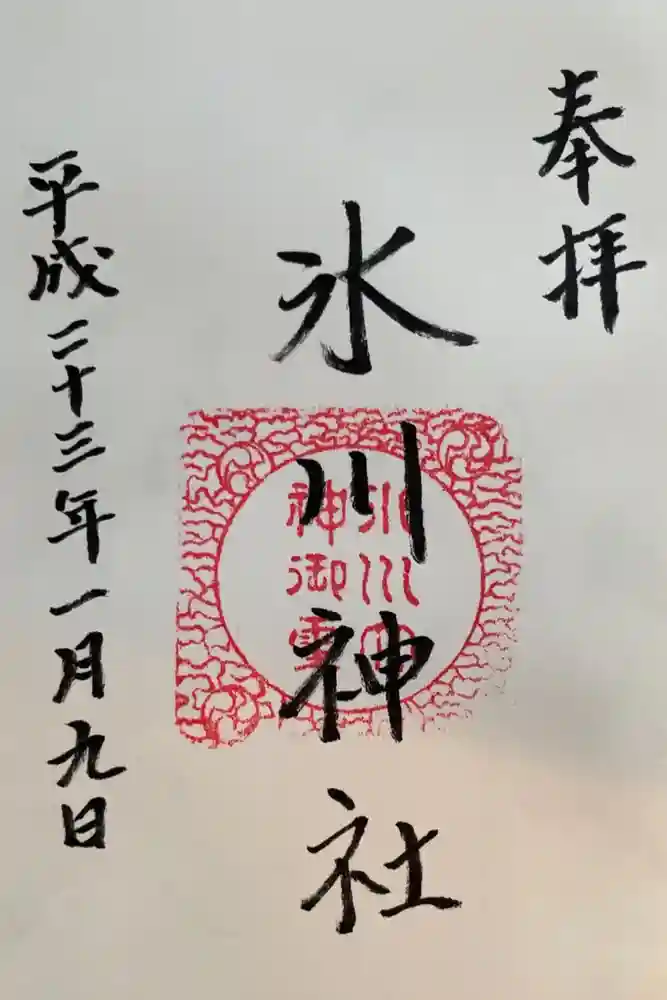 奉拝
氷川神社
氷川大
神御霊
平成二十三年一月九日